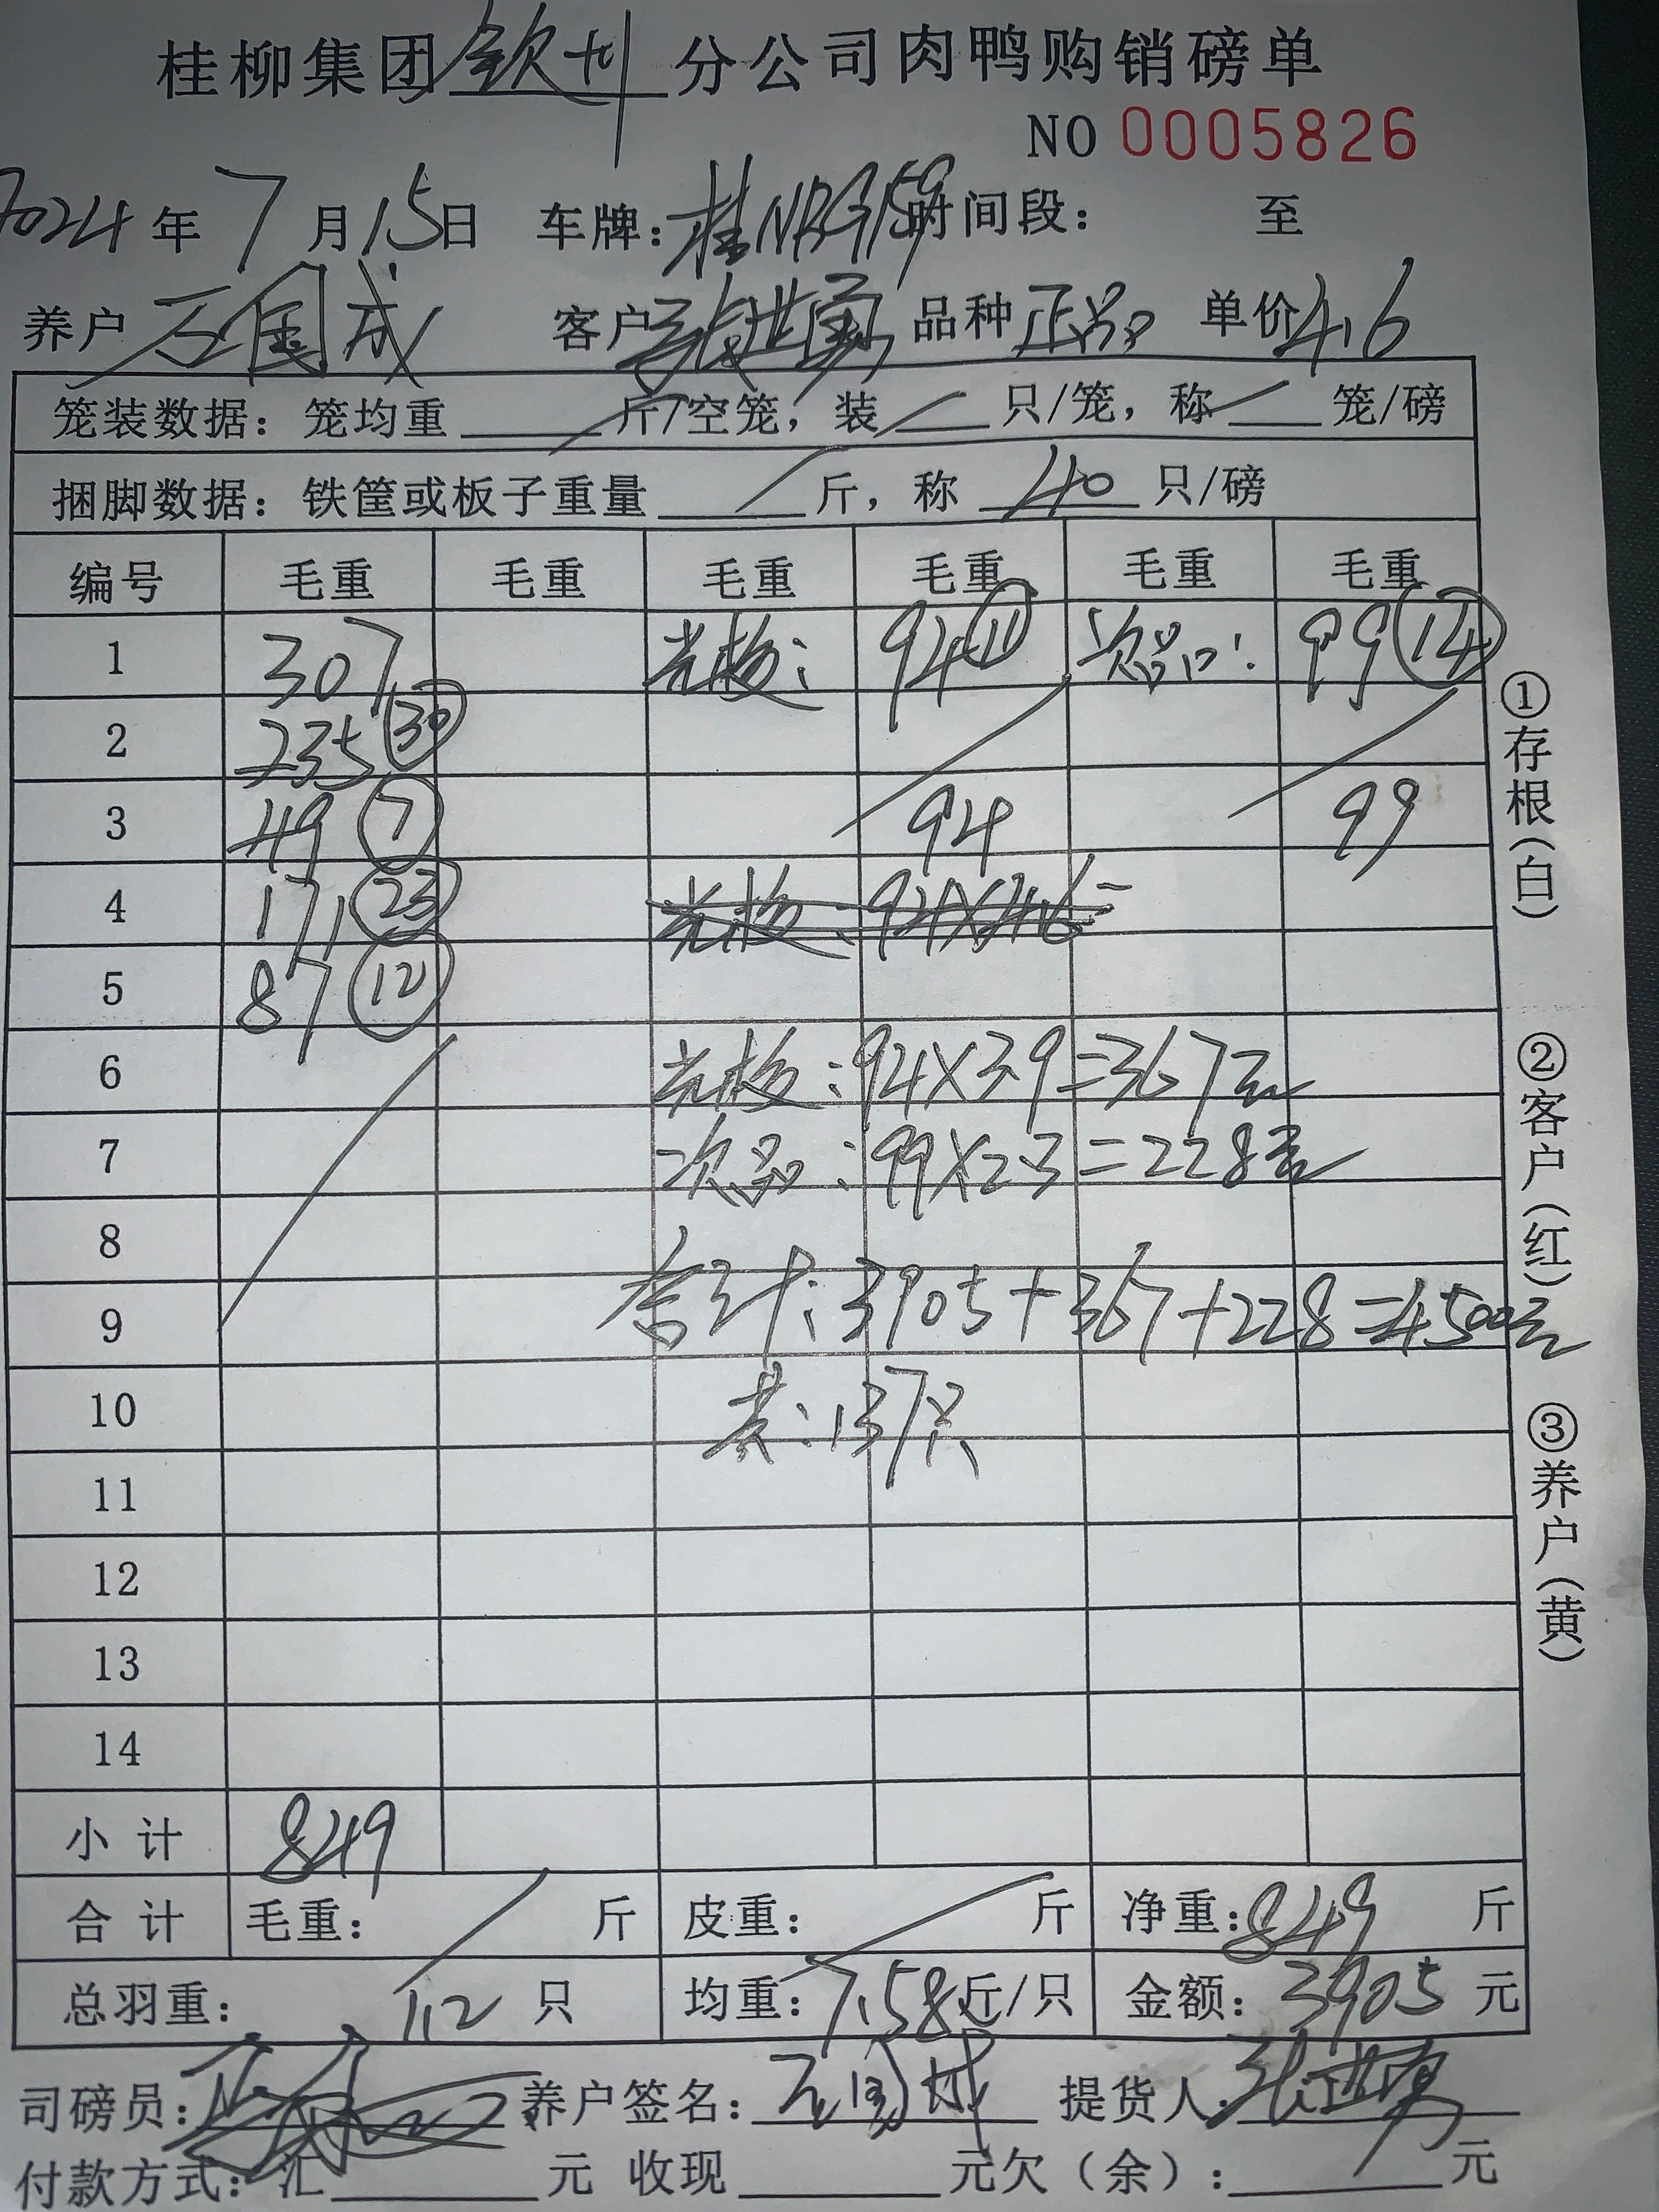 桂柳集团钦州分公司肉鸭购销磅单
NO 0005826
2024年7月15日 车牌：桂NBG159时间段： 至
养户 石国成 客户 张世勇 品种 正品 单价4.6
笼装数据：笼均重 斤/空笼，装 只/笼，称 笼/磅
捆脚数据：铁筐或板子重量 斤，称 40 只/磅
编号 毛重 毛重 毛重 毛重 毛重 毛重
1 307 94 11 次品： 99 14
2 235 30
3 49 7 94 99
4 171 23 94×4.6=
5 87 12
6 94×3.9=367元
7 次品：99×2.3=228元
8
9 合计：3905+367+228=4500元
10 共：137只
11
12
13
14
小计 849
合计 毛重： 斤 皮重： 斤 净重：849 斤
总羽重：112 只 均重：7.58斤/只 金额：3905元
司磅员： 养户签名：石国成 提货人：张世勇
付款方式：汇 元 收现 元欠（余）： 元
①存根（白）
②客户（红）
③养户（黄）